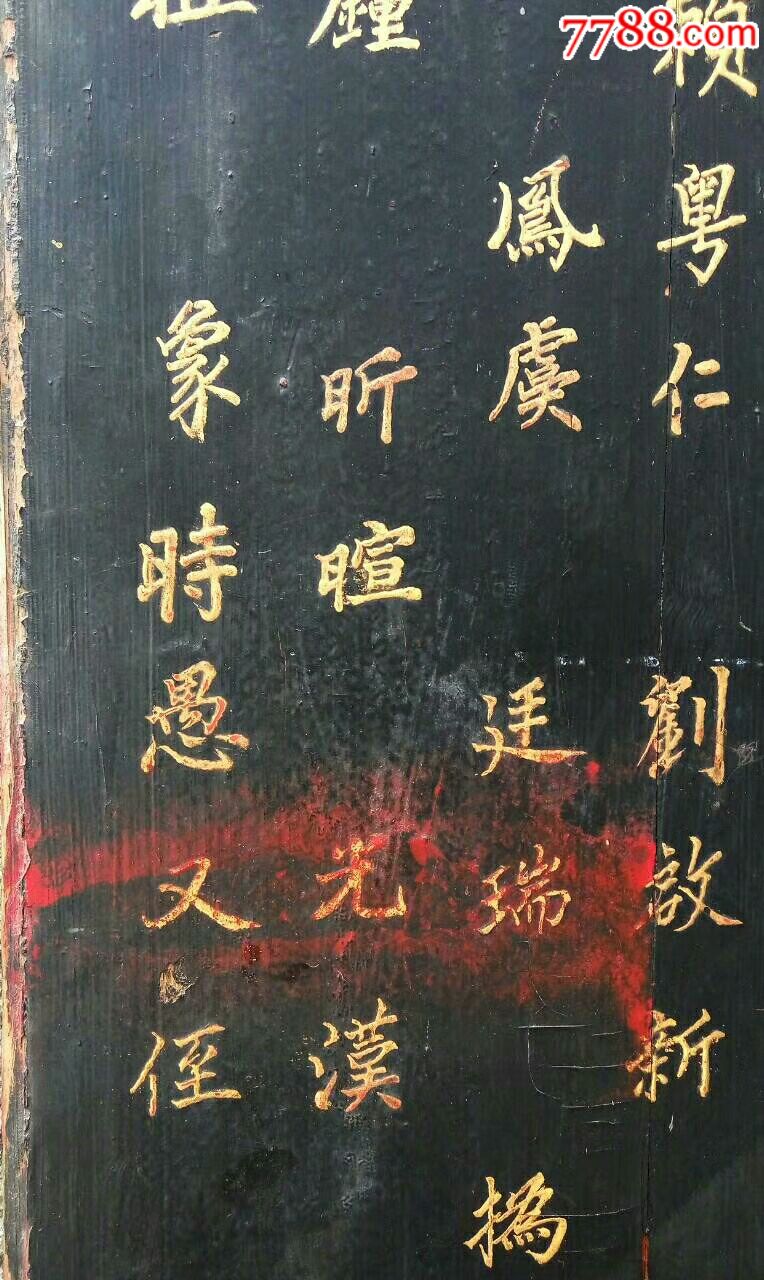 7788.com
賴粤仁 劉啟新
鳳虞 廷瑞 撝
鍾 昕暄 光漢
象時愚又侄